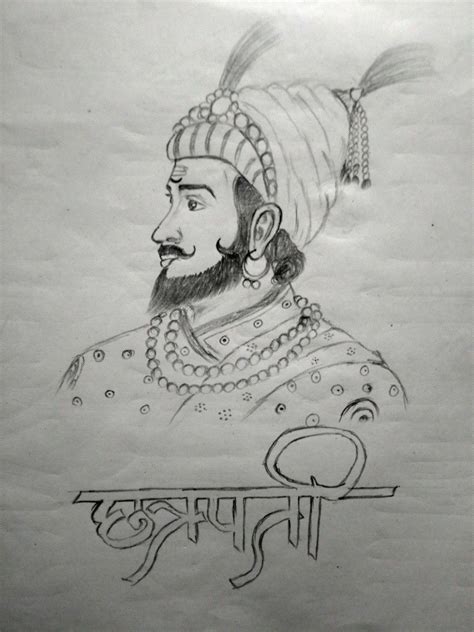 छत्रपती